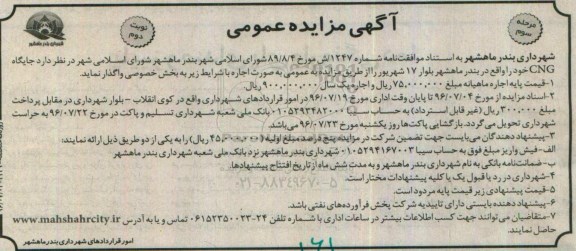 مرحله سوم
آگهی مزایده عمومی
نوبت دوم
شهرداری بندر ماهشهر
شهرداری بندر ماهشهر به استناد موافقت‌نامه شماره ۱۲۴۷/ش مورخ ۸۹/۸/۴ شورای اسلامی شهر بندر ماهشهر شورای اسلامی شهر در نظر دارد جایگاه
CNG خود را واقع در بندر ماهشهر بلوار ۱۷ شهریور را از طریق مزایده به عمومی به صورت اجاره با شرایط زیر به بخش خصوصی واگذار نماید.
۱-قیمت پایه اجاره ماهیانه مبلغ ۷۵,۰۰۰,۰۰۰ ریال و اجاره یک سال ۹۰۰,۰۰۰,۰۰۰ ریال.
۲-اسناد مزایده از مورخ ۹۶/۰۷/۰۴ تا پایان وقت اداری مورخ ۹۶/۰۷/۱۹ در امور قراردادهای شهرداری واقع در کوی انقلاب - بلوار شهرداری در مقابل پرداخت
مبلغ ۳۰۰۰۰۰ ریال (غیر قابل استرداد) به حساب سیبا ۰۱۰۵۲۹۳۴۸۲۰۰۱ بانک ملی شعبه شهرداری تسلیم و پاکت در مورخ ۹۶/۰۷/۲۲ به حراست
شهرداری تحویل می‌گردد. بازگشایی پاکت‌ها روز یکشنبه مورخ ۹۶/۰۷/۲۳ می‌باشد.
۳-پیشنهاد دهندگان می‌بایست جهت تضمین شرکت در مزایده پنج درصد مبلغ اولیه (۴۵۶۰۰۰۰۰ ریال) را به یکی از دو طریق ذیل ارائه نمایند:
الف-فیش واریز مبلغ فوق به حساب سیبا ۰۱۰۵۲۹۴۱۶۷۰۰۳ شهرداری بندر ماهشهر نزد بانک ملی شعبه شهرداری بندر ماهشهر
ب-ضمانت‌نامه بانکی به نام شهرداری بندر ماهشهر و به مدت شش ماه از تاریخ افتتاح پیشنهادها.
۴-شهرداری در رد یا قبول یک یا کلیه پیشنهادات مختار است.
۵-قیمت پیشنهادی زیر قیمت پایه مردود است.
۶-پیشنهاد دهنده بایستی دارای تاییدیه شرکت پخش فرآورده‌های نفتی باشد.
۷-متقاضیان می‌توانند جهت کسب اطلاعات بیشتر در ساعات اداری با شماره تلفن ۲۴-۰۶۱۵۲۳۵۰۰۲۳ تماس و یا به آدرس www.mahshahrcity.ir
حاصل نمایند.
امور قراردادهای شهرداری بندر ماهشهر
۰۲۱-۸۸۳۴۹۶۷۰-۵